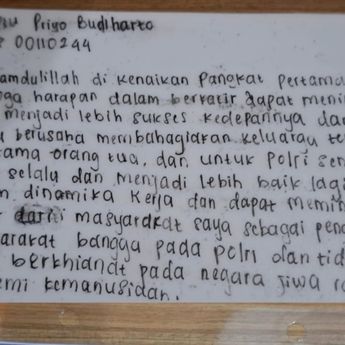 Priyo Budiharto
00110244
amdulillah di kenaikan pangkat pertama
ga harapan dalam berkarir dapat menin
menjadi lebih sukses kedepannya dan
berusaha membahagiakan keluarga te
ama orang tua, dan untuk Polri sem
selalu dan menjadi lebih baik lagi
m dinamika kerja dan dapat memin
dari masyarakat saya sebagai peng
arakat bangga pada polri dan tid
berkhianat pada negara jiwa ra
emi kemanusiaan.